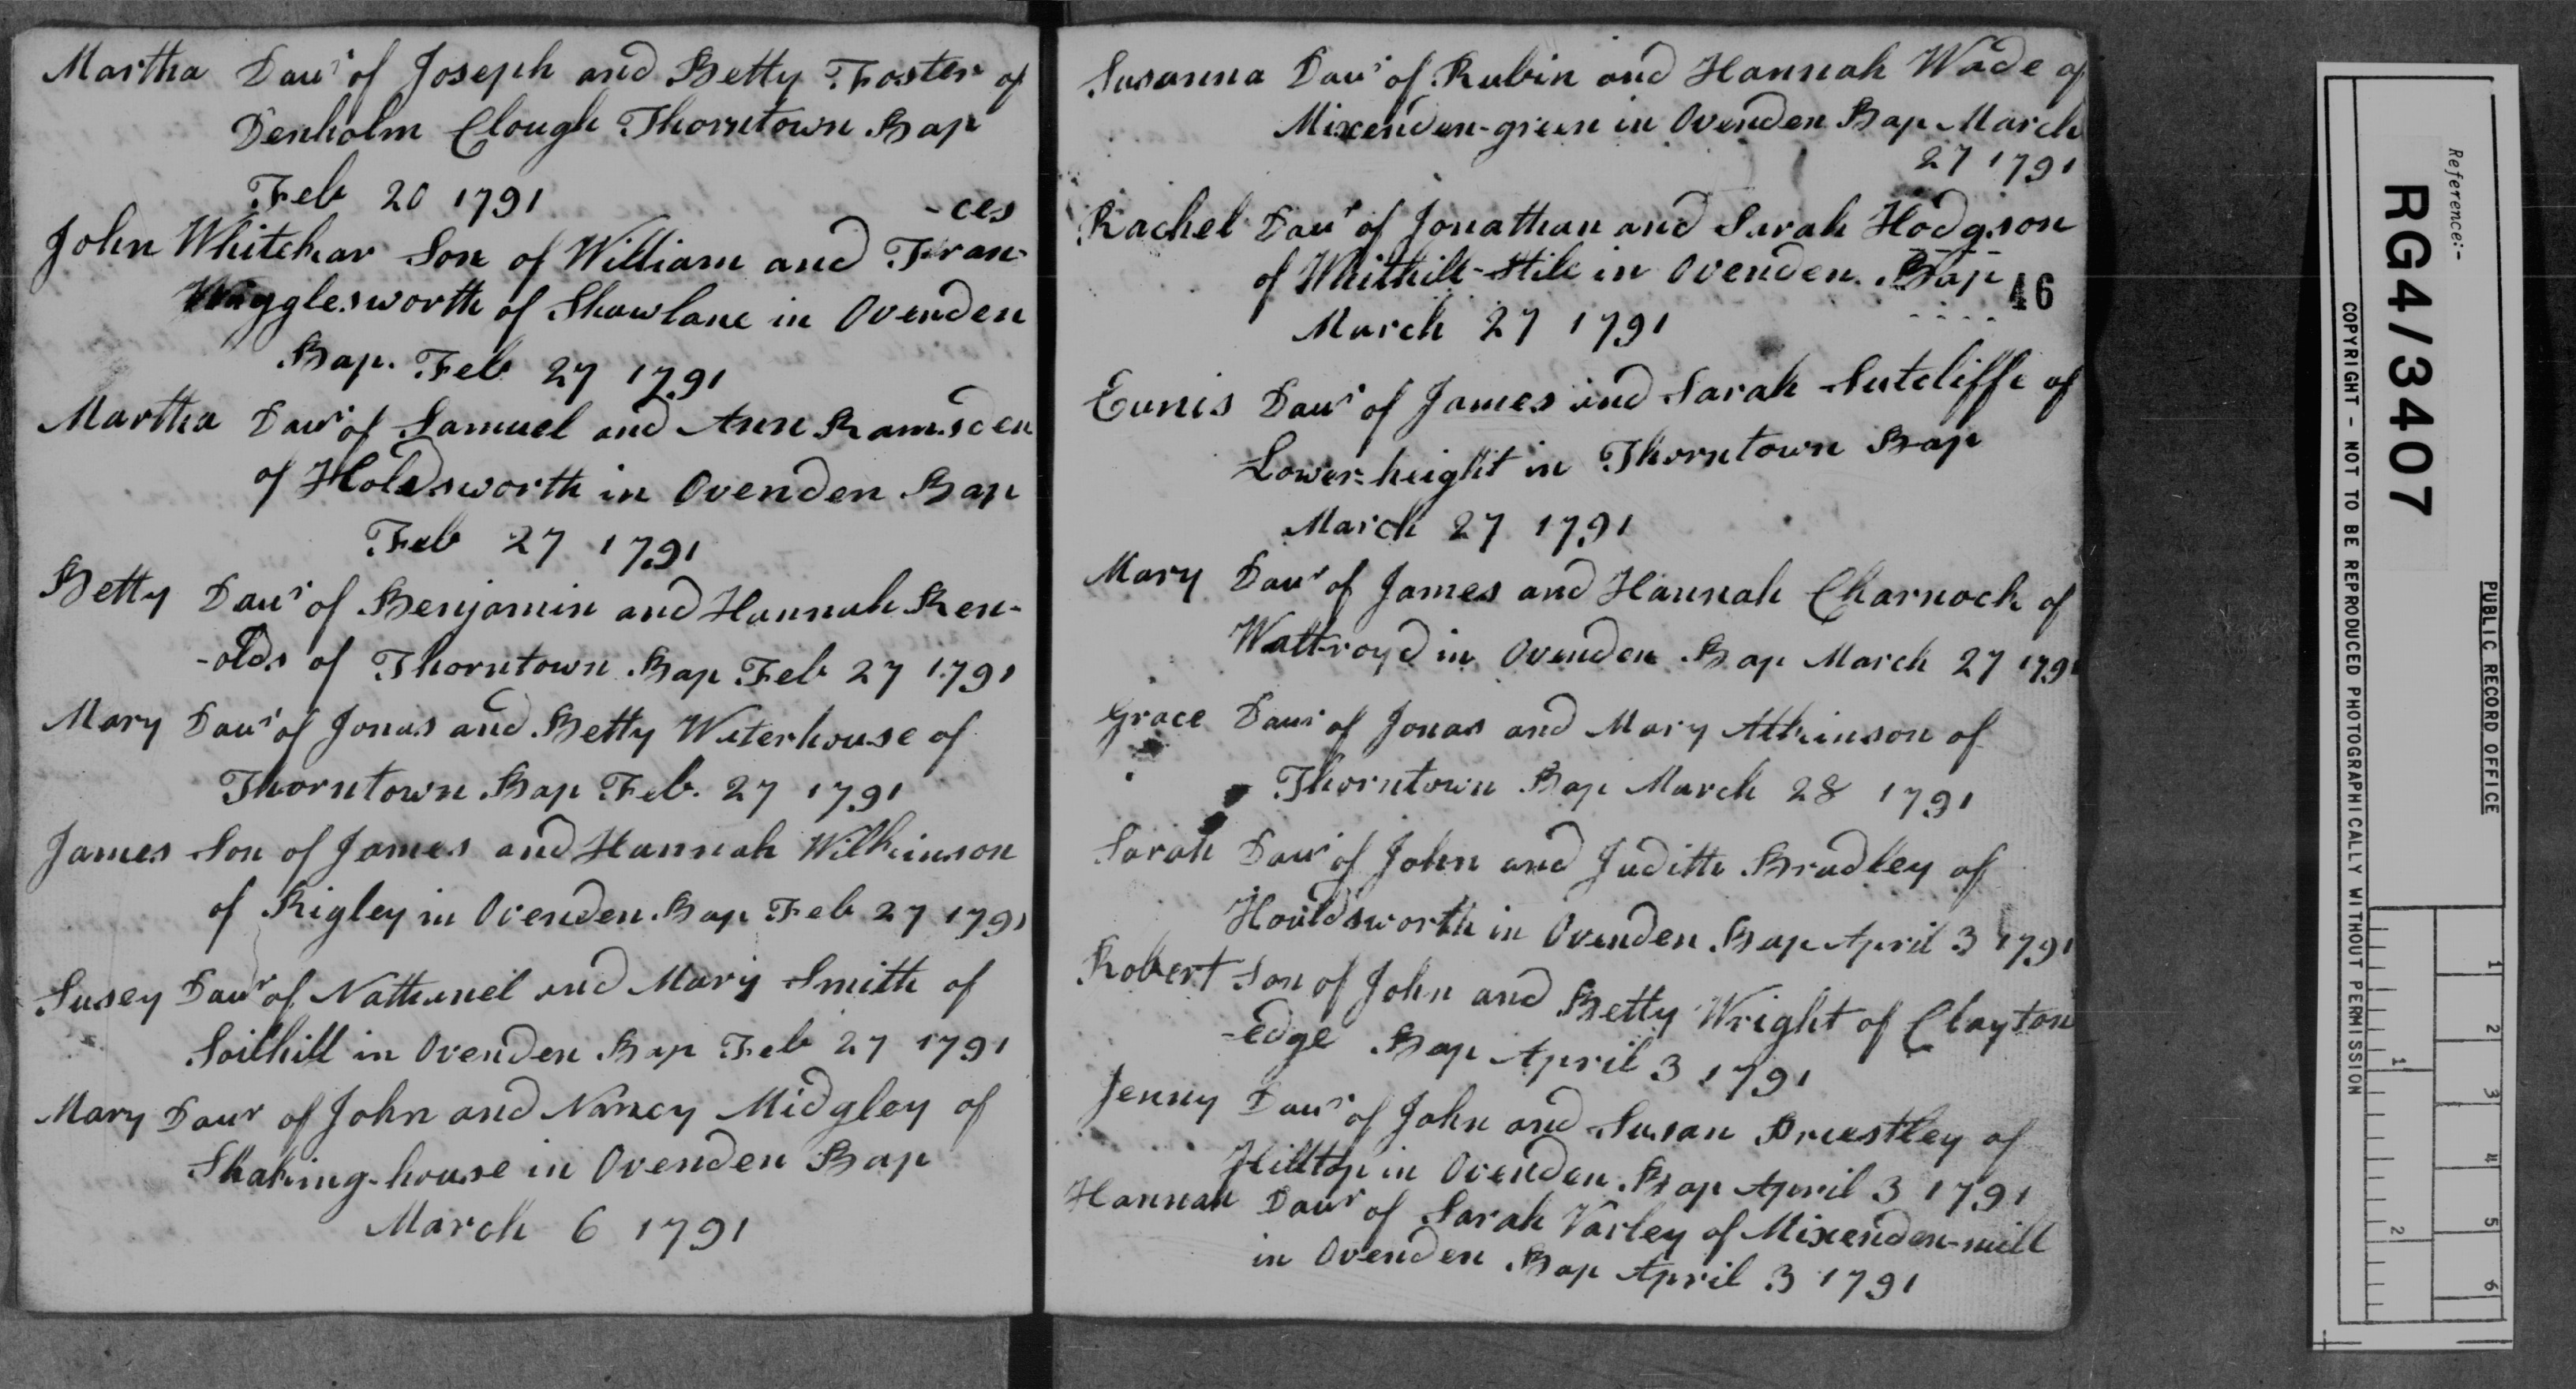 Martha Daur of Joseph and Betty Foster of
Denholm Clough Thorntown Bap
Feb 20 1791
-ces
John Whitehar Son of William and Fran-
Wigglesworth of Shawlane in Ovenden
Bap. Feb 27 1791
Martha Daur of Samuel and Ann Ramsden
of Holdsworth in Ovenden Bap
Feb 27 1791
Betty Daur of Benjamin and Hannah Ren-
-olds of Thorntown Bap Feb 27 1791
Mary Daur of Jonas and Betty Waterhouse of
Thorntown Bap Feb. 27 1791
James Son of James and Hannah Wilkinson
of Rigley in Ovenden Bap Feb 27 1791
Susey Daur of Nathanel and Mary Smith of
Soilhill in Ovenden Bap Feb 27 1791
Mary Daur of John and Nancy Midgley of
Shaking-house in Ovenden Bap
March 6 1791
Susanna Daur of Rubin and Hannah Wade of
Mixenden-green in Ovenden Bap March
27 1791
Rachel Daur of Jonathan and Sarah Hodgson
of Whithill-stile in Ovenden Bap
46
March 27 1791
Eunis Daur of James and Sarah Sutcliffe of
Lower-height in Thorntown Bap
March 27 1791
Mary Daur of James and Hannah Charnock of
Watt-royd in Ovenden Bap March 27 1791
Grace Daur of Jonas and Mary Atkinson of
Thorntown Bap March 28 1791
Sarah Daur of John and Judith Bradley of
Houldsworth in Ovenden Bap April 3 1791
Robert Son of John and Betty Wright of Clayton
-edge Bap April 3 1791
Jenny Daur of John and Susan Priestley of
Hilltop in Ovenden Bap April 3 1791
Hannah Daur of Sarah Varley of Mixenden-mill
in Ovenden Bap April 3 1791
PUBLIC RECORD OFFICE
Reference:-
RG4/3407
COPYRIGHT - NOT TO BE REPRODUCED PHOTOGRAPHICALLY WITHOUT PERMISSION
1 2 3 4 5 6
1 2